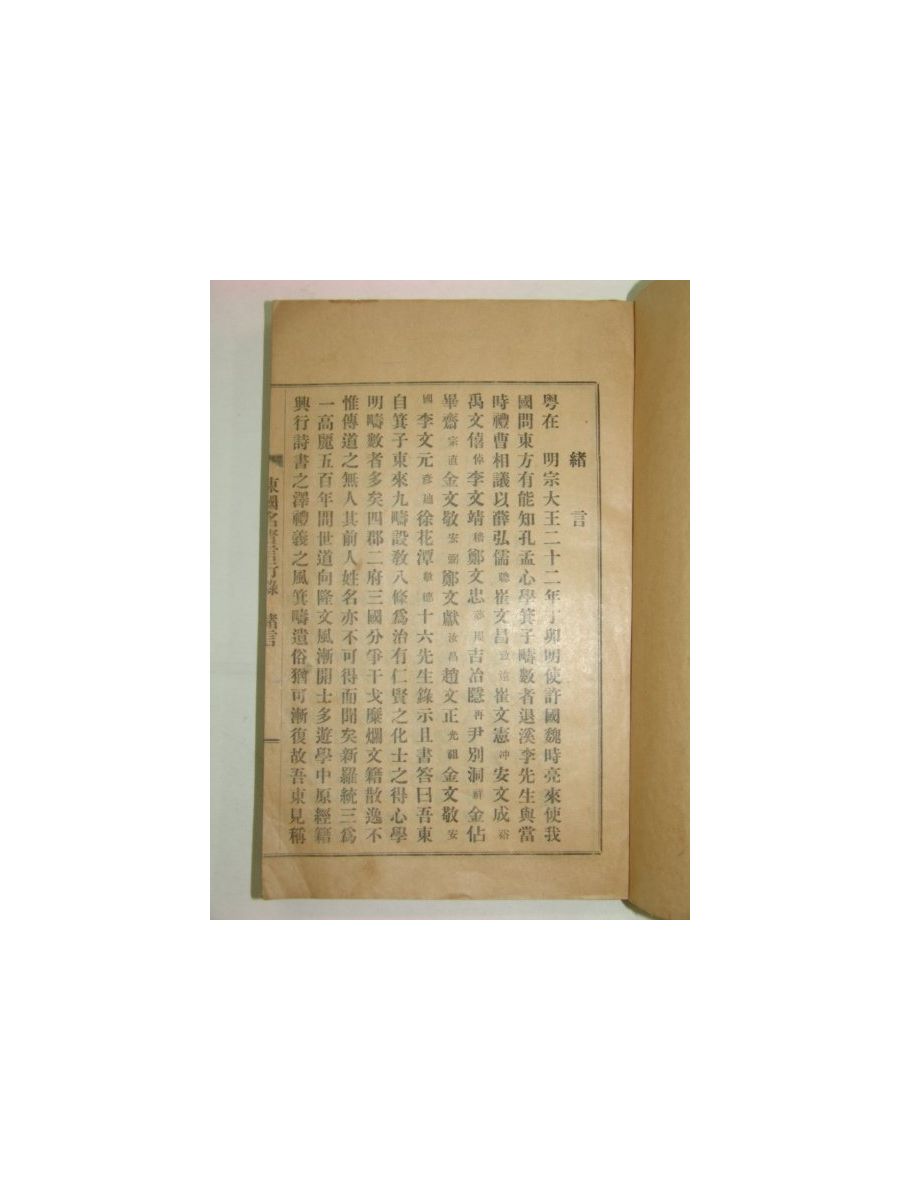 緒言
粤在 明宗大王二十二年丁卯明使許國魏時亮來使我
國問東方有能知孔孟心學箕子疇數者退溪李先生與當
時禮曹相議以薛弘儒聰崔文昌致遠崔文憲冲安文成裕
禹文僖倬李文靖穡鄭文忠夢周吉冶隱再尹別洞祥金佔
畢齋宗直金文敬宏弼鄭文獻汝昌趙文正光祖金文敬安
國李文元彦迪徐花潭敬德十六先生錄示且書答曰吾東
自箕子東來九疇設敎八條爲治有仁賢之化士之得心學
明疇數者多矣四郡二府三國分爭干戈糜爛文籍散逸不
惟傳道之無人其前人姓名亦不可得而聞矣新羅統三爲
一高麗五百年間世道向隆文風漸開士多遊學中原經籍
興行詩書之澤禮義之風箕疇遺俗猶可漸復故吾東見稱
東國名賢言行錄 緒言